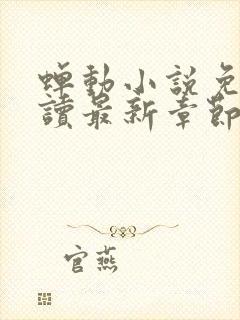 蟬動小說免
讀最新章節
官燕